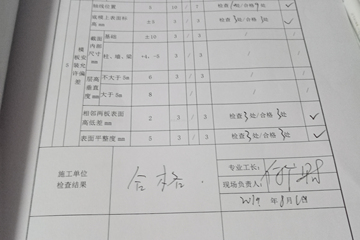 轴线位置 5 10 / 3 检查 处/合格 处 ✓
底模上表面标高mm ±5 3 / 3 检查3处/合格3处 ✓
5 模板安装允许偏差
截面内部尺寸mm 基础 ±10 3 / 3
柱、墙、梁 +4,-5 3 / 3
层高垂直度mm 不大于5m 6 3 / 3
大于5m 8 / /
相邻两板表面高低差 mm 2 3 / 3 检查3处/合格3处 ✓
表面平整度mm 5 3 / 3 检查3处/合格3处 ✓
施工单位检查结果 合格.
专业工长:
现场负责人:
2019 年 8月 日